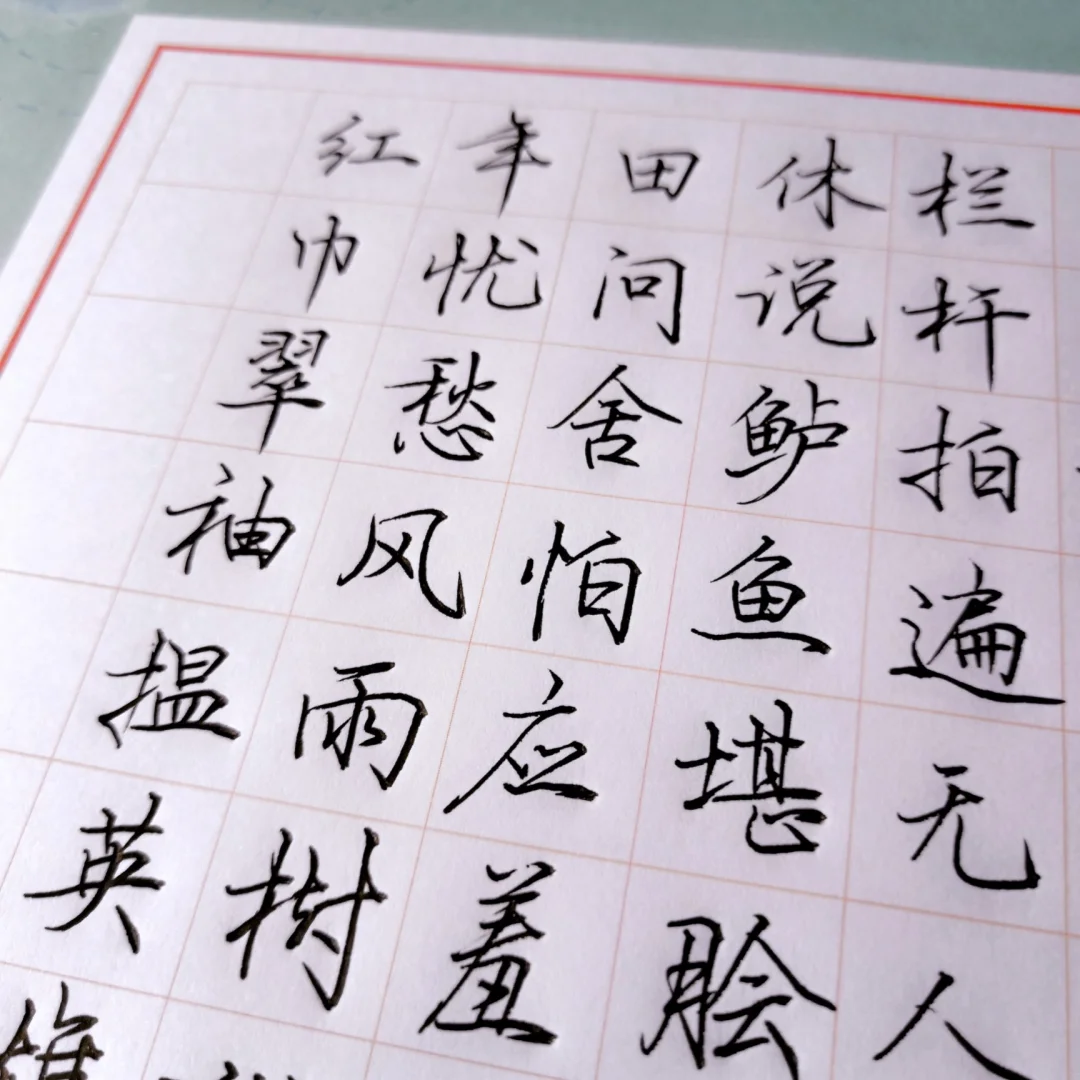 栏杆拍遍无人
休说鲈鱼堪脍
田问舍怕应羞
年忧愁风雨树
红巾翠袖揾英